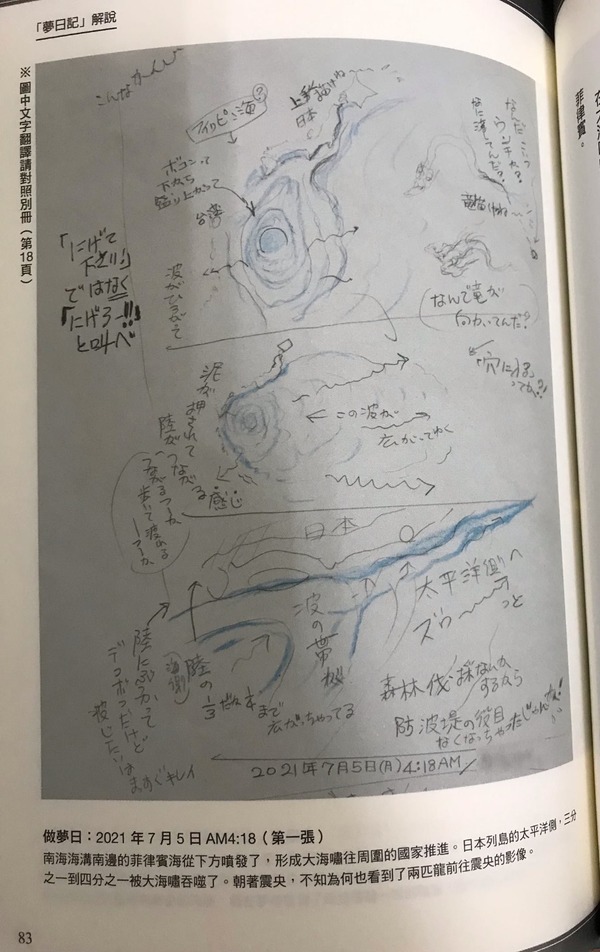 「夢日記」解說
※圖中文字翻譯請對照別冊（第18頁）
こんなかーんじ
フィリピン海?
上手く描けね〜
日本
ボコンって
下から
盛り上がって
台湾
波がひろがって
竜描けね
(なんで竜が
向かいてんだ?
「にげて
下さい」
ではなく
「にげろー!!」
と叫べ
泥が押されて
陸がつながる
感じ
この波が
広がってゆく
つながるつーか
歩いて渡れる
つーか
日本
太平洋側へ
ズゥーっと
波の帯が
陸にぶつかって
デコボコだけど
波じたいは
まっすぐキレイ
陸の
(海側)
1/3だか1/4まで
広がっちゃってる
森林伐採なんか
するから
防波堤の役目
なくなっちゃったじゃんか!
2021年7月5日(月)4:18AM
做夢日：2021年7月5日AM4:18（第一張）
南海海溝南邊的菲律賓海從下方噴發了，形成大海嘯往周圍的國家推進。日本列島的太平洋側，三分
之一到四分之一被大海嘯吞噬了。朝著震央，不知為何也看到了兩匹龍前往震央的影像。
83
菲律賓。